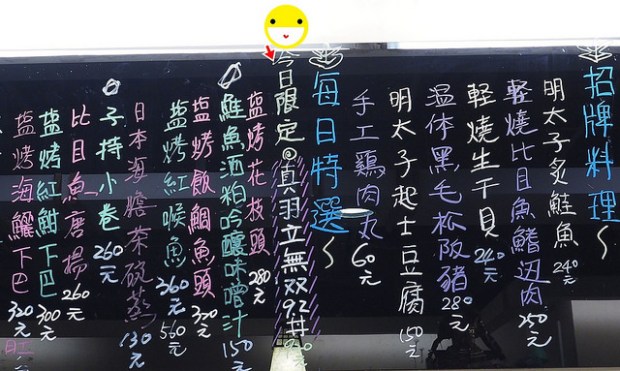 招牌料理～
明太子炙鮭魚 240元
輕燒比目魚鰭边肉 250元
輕燒生干貝 240元
温体黑毛松阪豬 280元
明太子起士豆腐 150元
手工鷄肉丸 60元
每日特選～
今日限定◎真羽立無双92丼
塩烤花枝頭 280元
鮭魚酒粕吟釀味噌汁 150元
塩烤飯鯛魚頭
塩烤紅喉魚 360元 560元
日本海膽茶碗蒸 130元
子持小卷 260元
比目魚唐揚 260元
塩烤紅魽下巴 300元
塩烤海鱺下巴 320元